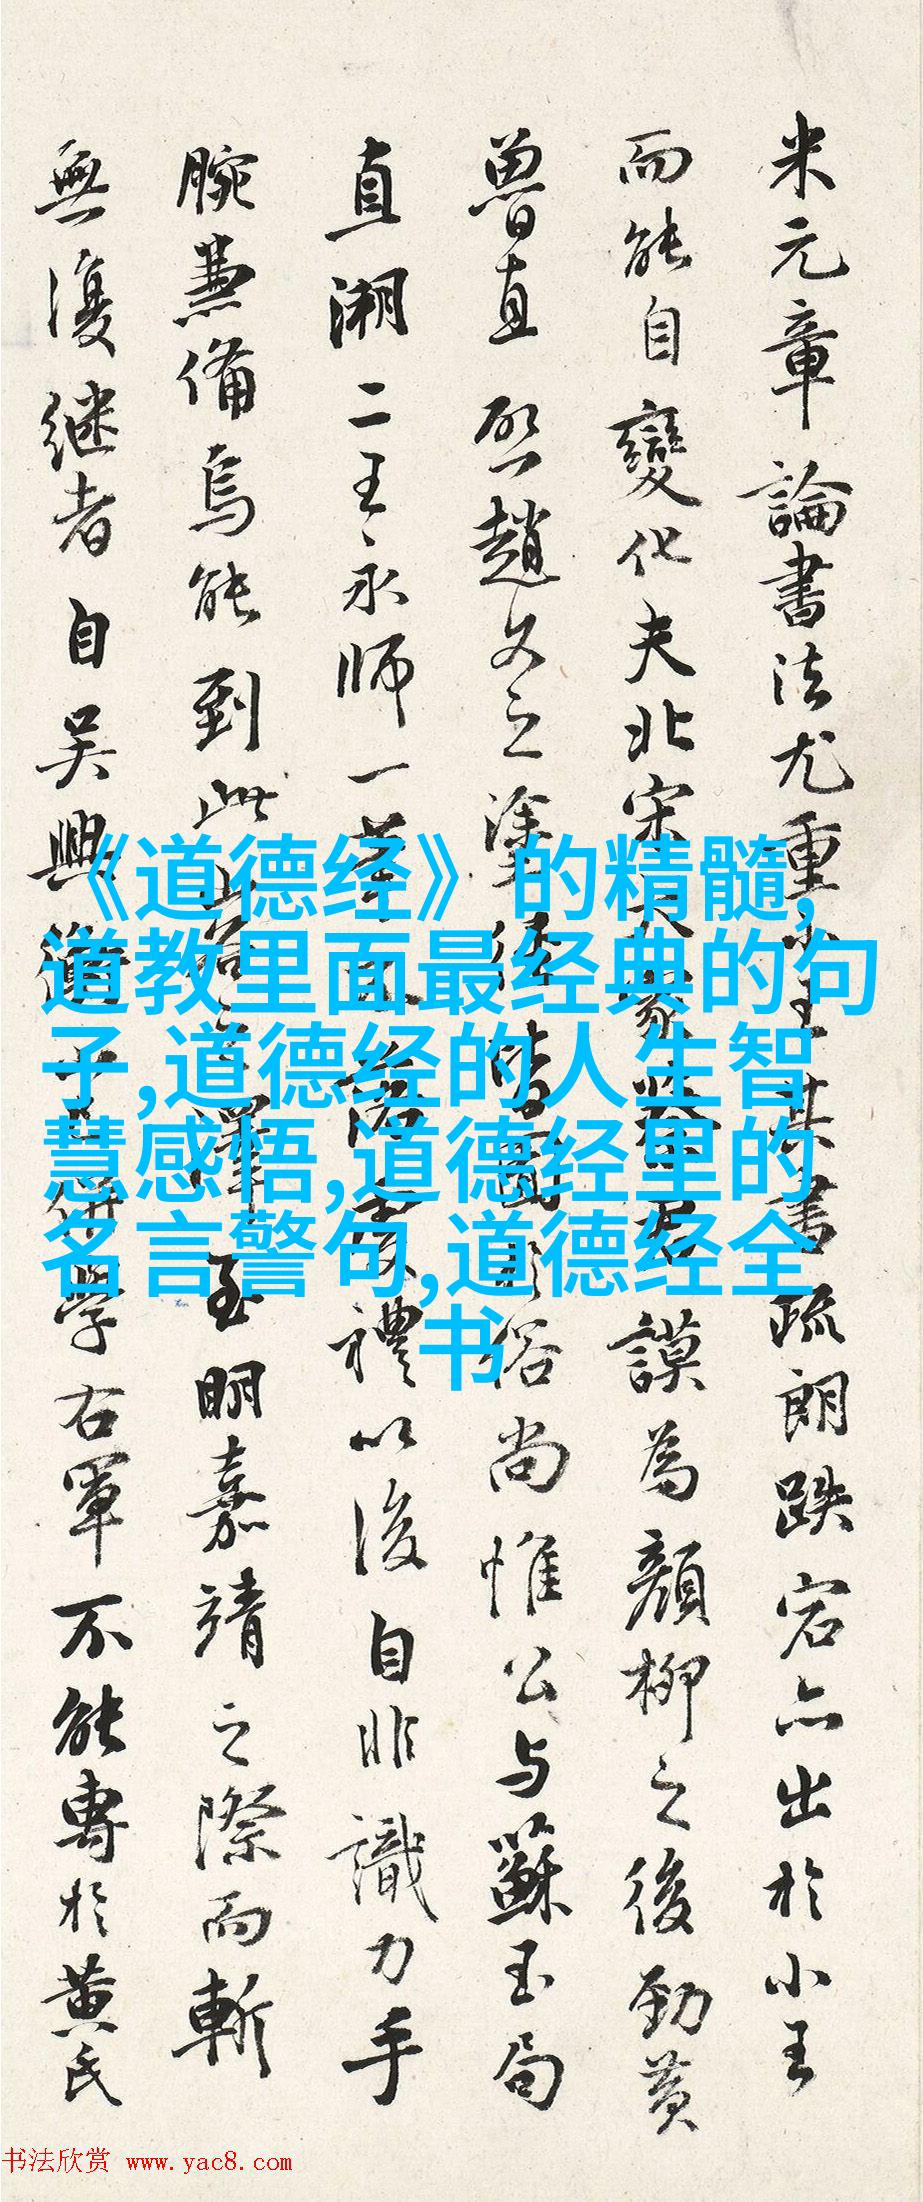 米元章論書法尤重小王其書疏朗跌宕亦出於小王
而能自變化夫北宋為顏柳之後勁黄
魯直 趙文之塗俗尚惟公与蘇玉局
直溯二王永師一禮以後自非識力手
腕兼備烏能到此至明嘉靖之際而斬
無復继者自吴興學右軍不能專於黄氏
《道德经》的精髓,
道教里面最经典的句
子,道德经的人生智
慧感悟,道德经里的
名言警句,道德经全
书
书法欣赏 www.yac8.com